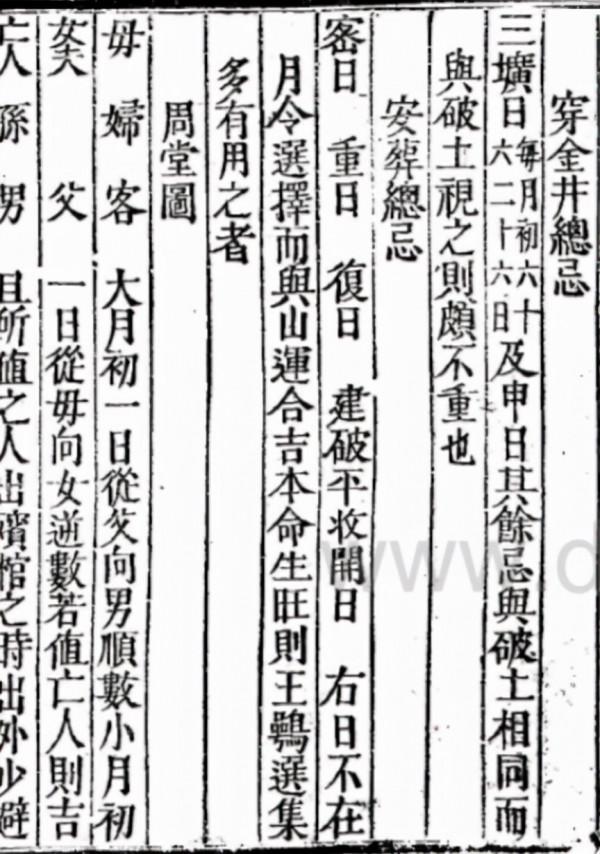 穿金井總忌
三壙日每月初六十六二十六日及申日其餘忌與破土相同而
與破土視之則頗不重也
安葬總忌
密日 重日 復日 建破平收開日 右日不在
月令選擇而與山運合吉本命生旺則王鶚選集
多有用之者
周堂圖
毋 婦 客 大月初一日從父向男順數小月初
女夫 父 一日從毋向女逆數若值亡人則吉
亡人 孫 男 且所值之人出殯棺之時出外少避
www.d